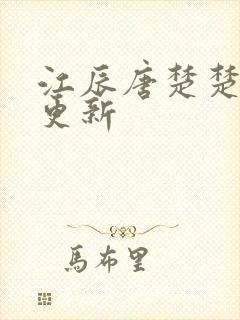 江辰唐楚楚
更新
馬布里